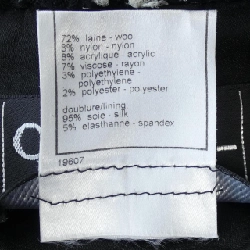 72% laine - woo
8% nylon - nylon
8% acrylique - acrylic
7% viscose - rayon
3% polyethylene -
polyethylene
2% polyester - polyester
doublure/lining
95% soie - silk
5% elasthanne - spandex
19607